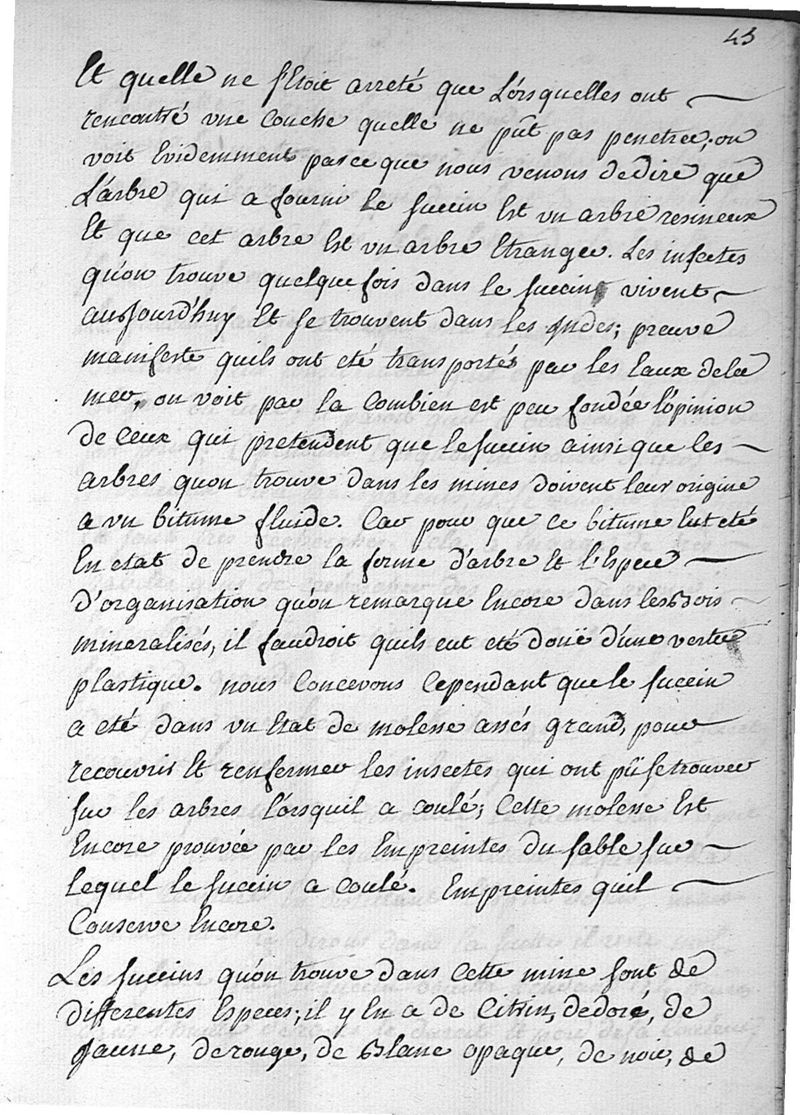 43
Et quelle ne s'Etoit arreté que Lorsquelles ont
rencontré vne Couche quelle ne pût pas penetrer; on
voit Evidemment parceque nous venons dedire que
L'arbre qui a fourni Le succin Est vn arbre resineux
Et que cet arbre Est vn arbre Etranger. Les insectes
qu'on trouve quelque fois dans le succin vivent
aujourd'huy Et se trouvent dans les Indes; preuve
manifeste quils ont eté transportés par les Eaux dela
mer, on voit par la Combien est peu fondée l'opinion
de Ceux qui pretendent que le succin ainsi que les
arbres qu'on trouve dans les mines doivent leur origine
a vn bitume fluide. Car pour que ce bitume Eut eté
En etat de prendre la forme d'arbre Et l'Espece
d'organisation qu'on remarque Encore dans les Bois
mineralisés, il faudroit quils eut eté doüé d'une vertu
plastique. nous Concevons Cependant que le succin
a eté dans vn Etat de molesse assés grand, pour
recouvrir Et renfermer les insectes qui ont pû se trouver
sur les arbres Lorsquil a coulé; Cette molesse Est
Encore prouvée par les Empreintes du sable sur
lequel le succin a coulé. Empreintes quil
Conserve Encore.
Les succins qu'on trouve dans Cette mine sont de
differentes Especes; il y En a de Citrin, de doré, de
Jaune, de rouge, de Blanc opaque, de noir, de